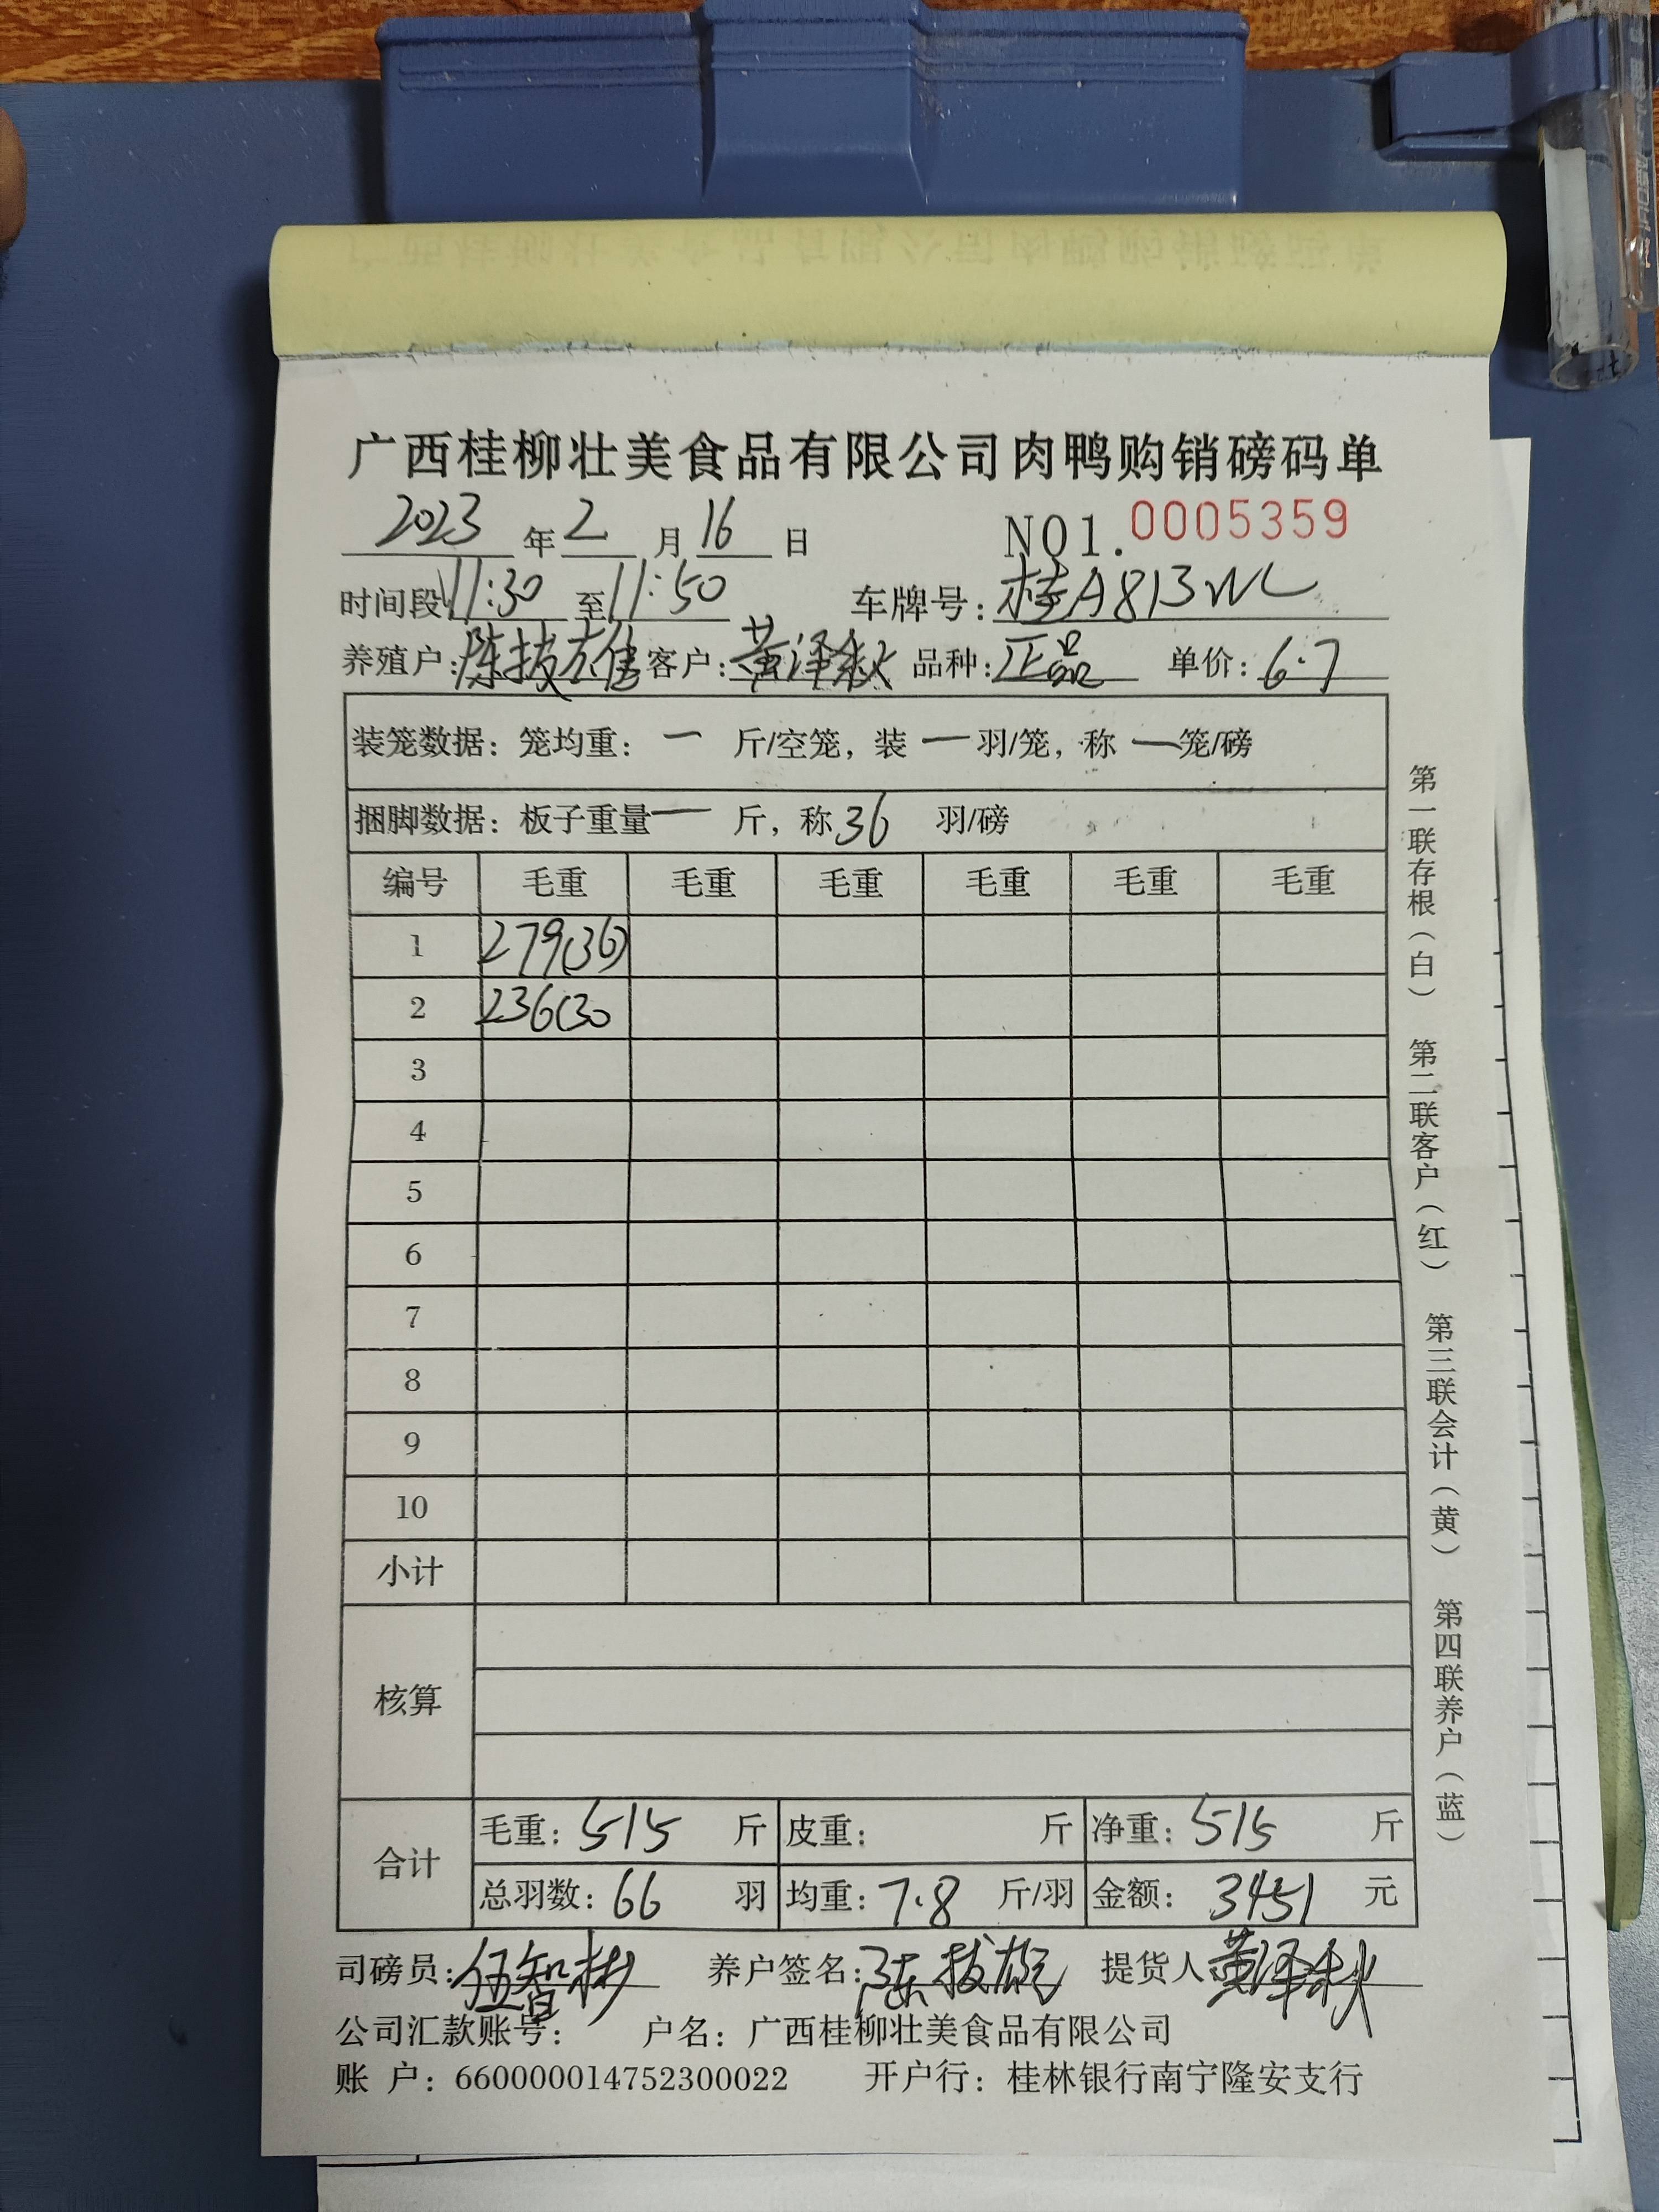 广西桂柳壮美食品有限公司肉鸭购销磅码单
2023 年 2 月 16 日 NO1. 0005359
时间段 11:30 至 11:50 车牌号: 桂A813WL
养殖户: 陈拔雄 客户: 黄泽秋 品种: 正品 单价: 6.7
装笼数据: 笼均重: 一 斤/空笼, 装 一 羽/笼, 称 一 笼/磅
捆脚数据: 板子重量 一 斤, 称 36 羽/磅
编号 毛重 毛重 毛重 毛重 毛重 毛重
1 279(36)
2 236(30
3
4
5
6
7
8
9
10
小计
核算
合计
毛重: 515 斤 皮重: 斤 净重: 515 斤
总羽数: 66 羽 均重: 7.8 斤/羽 金额: 3451 元
司磅员: 伍智彬 养户签名: 陈拔雄 提货人 黄泽秋
公司汇款账号: 户名: 广西桂柳壮美食品有限公司
账 户: 660000014752300022 开户行: 桂林银行南宁隆安支行
第一联存根(白) 第二联客户(红) 第三联会计(黄) 第四联养户(蓝)